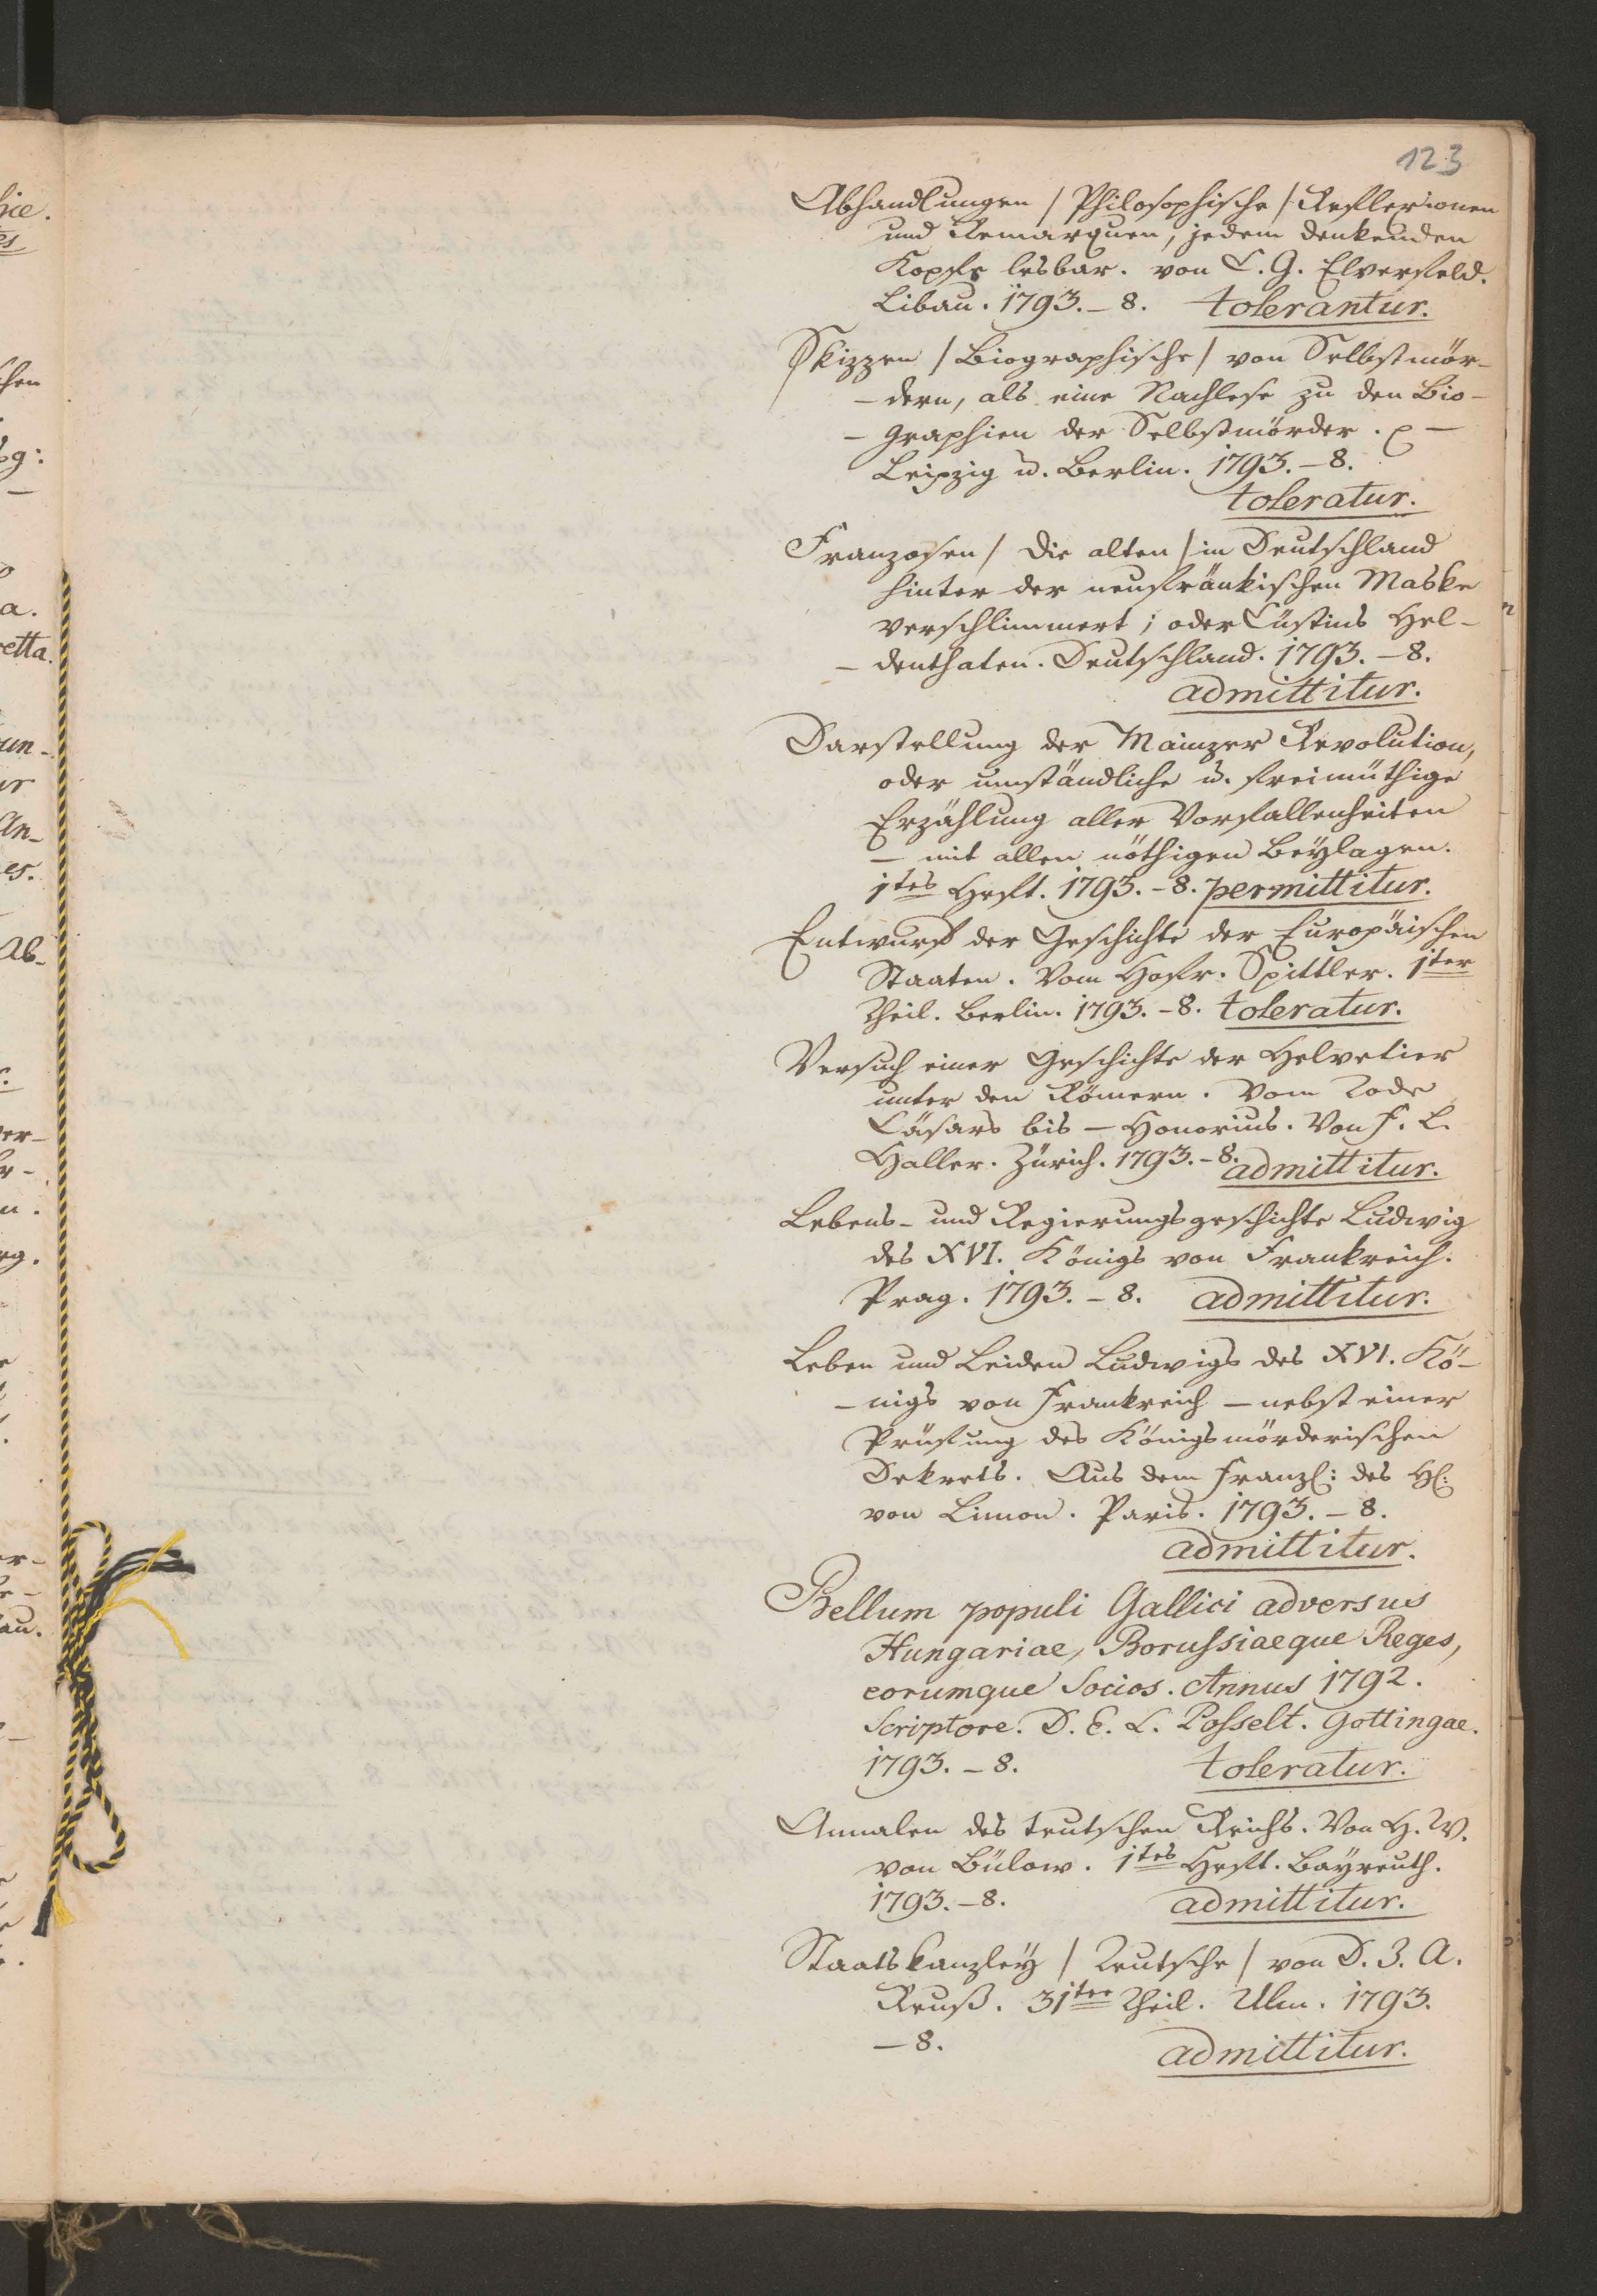 123
Abhandlungen / Philosophische / Reflexionen
und Remarquen, jedem denkenden
Kopfe lesbar. von C. G. Elverfeld.
Libau. 1793. – 8. tolerantur.
Skizzen / Biographische / von Selbstmör-
- dern, als eine Nachlese zu den Bio-
- graphien der Selbstmörder. –
Leipzig u. Berlin. 1793. – 8.
toleratur.
Franzosen / die alten / in Deutschland
hinter der neufränkischen Maske
verschlimmert; oder Cüstins Hel-
- denthaten. Deutschland. 1793. – 8.
admittitur.
Darstellung der Mainzer Revolution,
oder umständliche u. freimüthige
Erzählung aller Vorfallenheiten
– mit allen nöthigen Beÿlagen.
1tes Heft. 1793. – 8. permittitur.
Entwurf der Geschichte der Europäischen
Staaten. Vom Hofr. Spittler. 1ter
Theil. Berlin. 1793. – 8. toleratur.
Versuch einer Geschichte der Helvetier
unter den Römern. Vom Tode
Cäsars bis – Honorius. Von F. L.
Haller. Zürich. 1793. – 8. admittitur.
Lebens- und Regierungsgeschichte Ludwig
des XVI. Königs von Frankreich.
Prag. 1793. – 8. admittitur.
Leben und Leiden Ludwigs des XVI. Kö-
- nigs von Frankreich – nebst einer
Prüfung des Königsmörderischen
Dekrets. Aus dem Franz: des H:
von Limon. Paris. 1793. – 8.
admittitur.
Bellum populi Gallici adversus
Hungariae, Borussiaeque Reges,
eorumque Socios. Annus 1792.
Scriptore. D. E. L. Posselt. Gottingae.
1793. – 8. toleratur.
Annalen des teutschen Reichs. Von H. W.
von Bülow. 1tes Heft. Baÿreuth.
1793. – 8. admittitur.
Staatskanzleÿ / Teutsche / von D. J. A.
Reuß. 31ter Theil. Ulm. 1793.
– 8. admittitur.